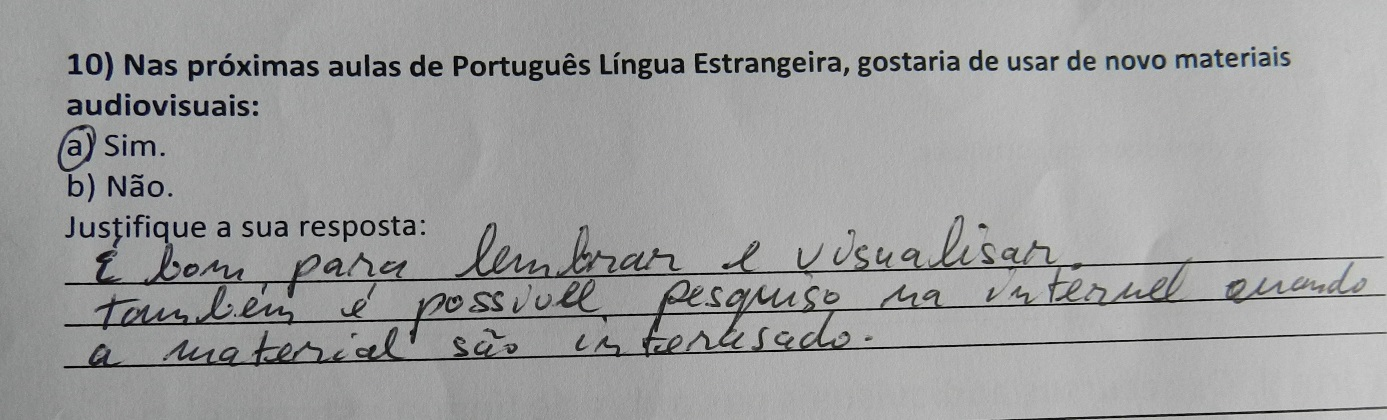 10) Nas próximas aulas de Português Língua Estrangeira, gostaria de usar de novo materiais
audiovisuais:
a) Sim.
b) Não.
Justifique a sua resposta:
É bom para lembrar e visualisar.
também é possivel pesquiso na internel quando
a material são interesado.